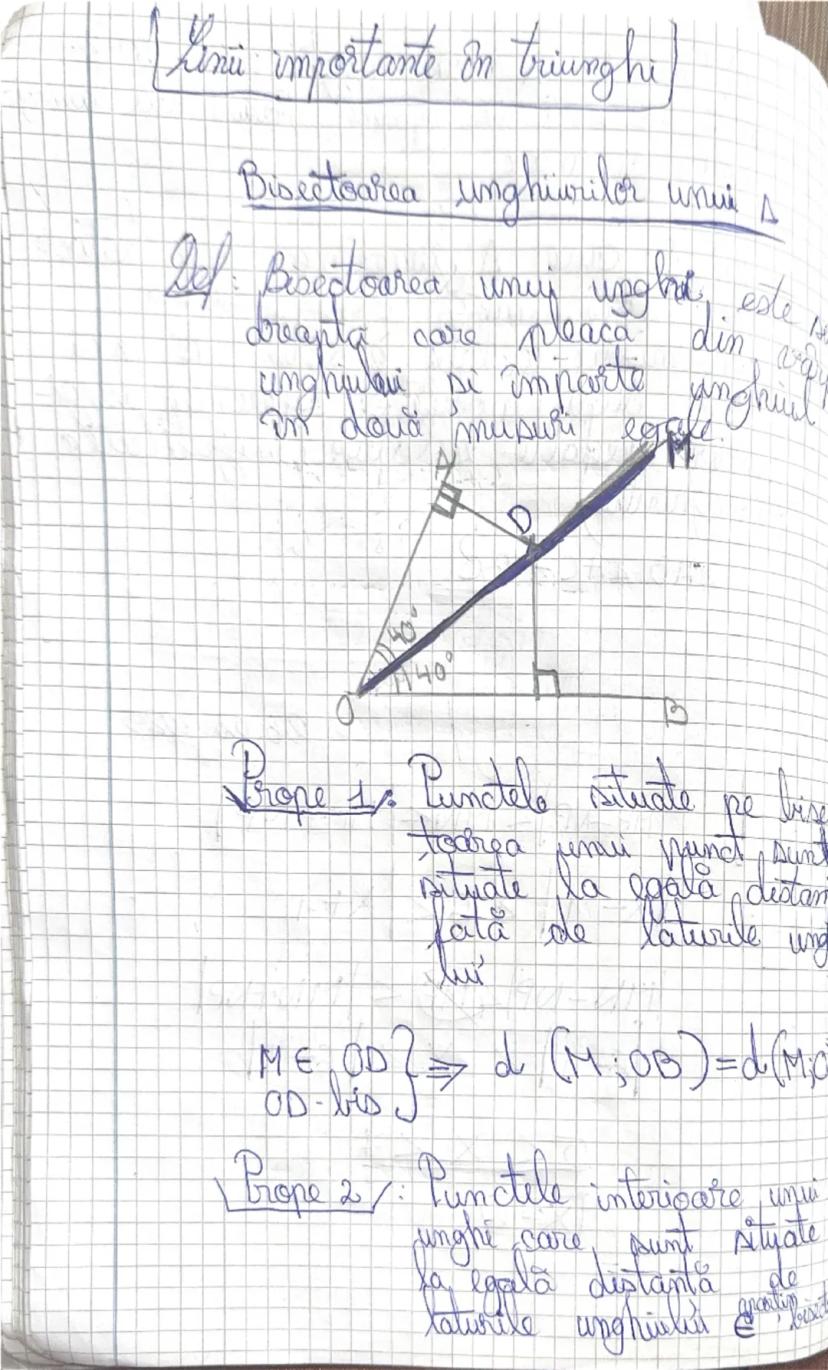 Linii importante în triunghi
Bisectoarea unghiurilor unui Δ
Def: Bisectoarea unui unghi este
dreapta care pleacă din
unghiului și împarte unghiul
în două măsuri egale.
M
D
40°
40°
O
B
Prope 1: Punctele situate pe bise
toarea unui punct sunt
situate la egală distan
față de laturile ung
lui
M ∈ OD
OD-bis } ⇒ d (M; OB) = d(M;O
Prope 2: Punctele interioare unui
unghi care sunt situate
la egală distanță de
laturile unghiului ∈ aparțin bisect